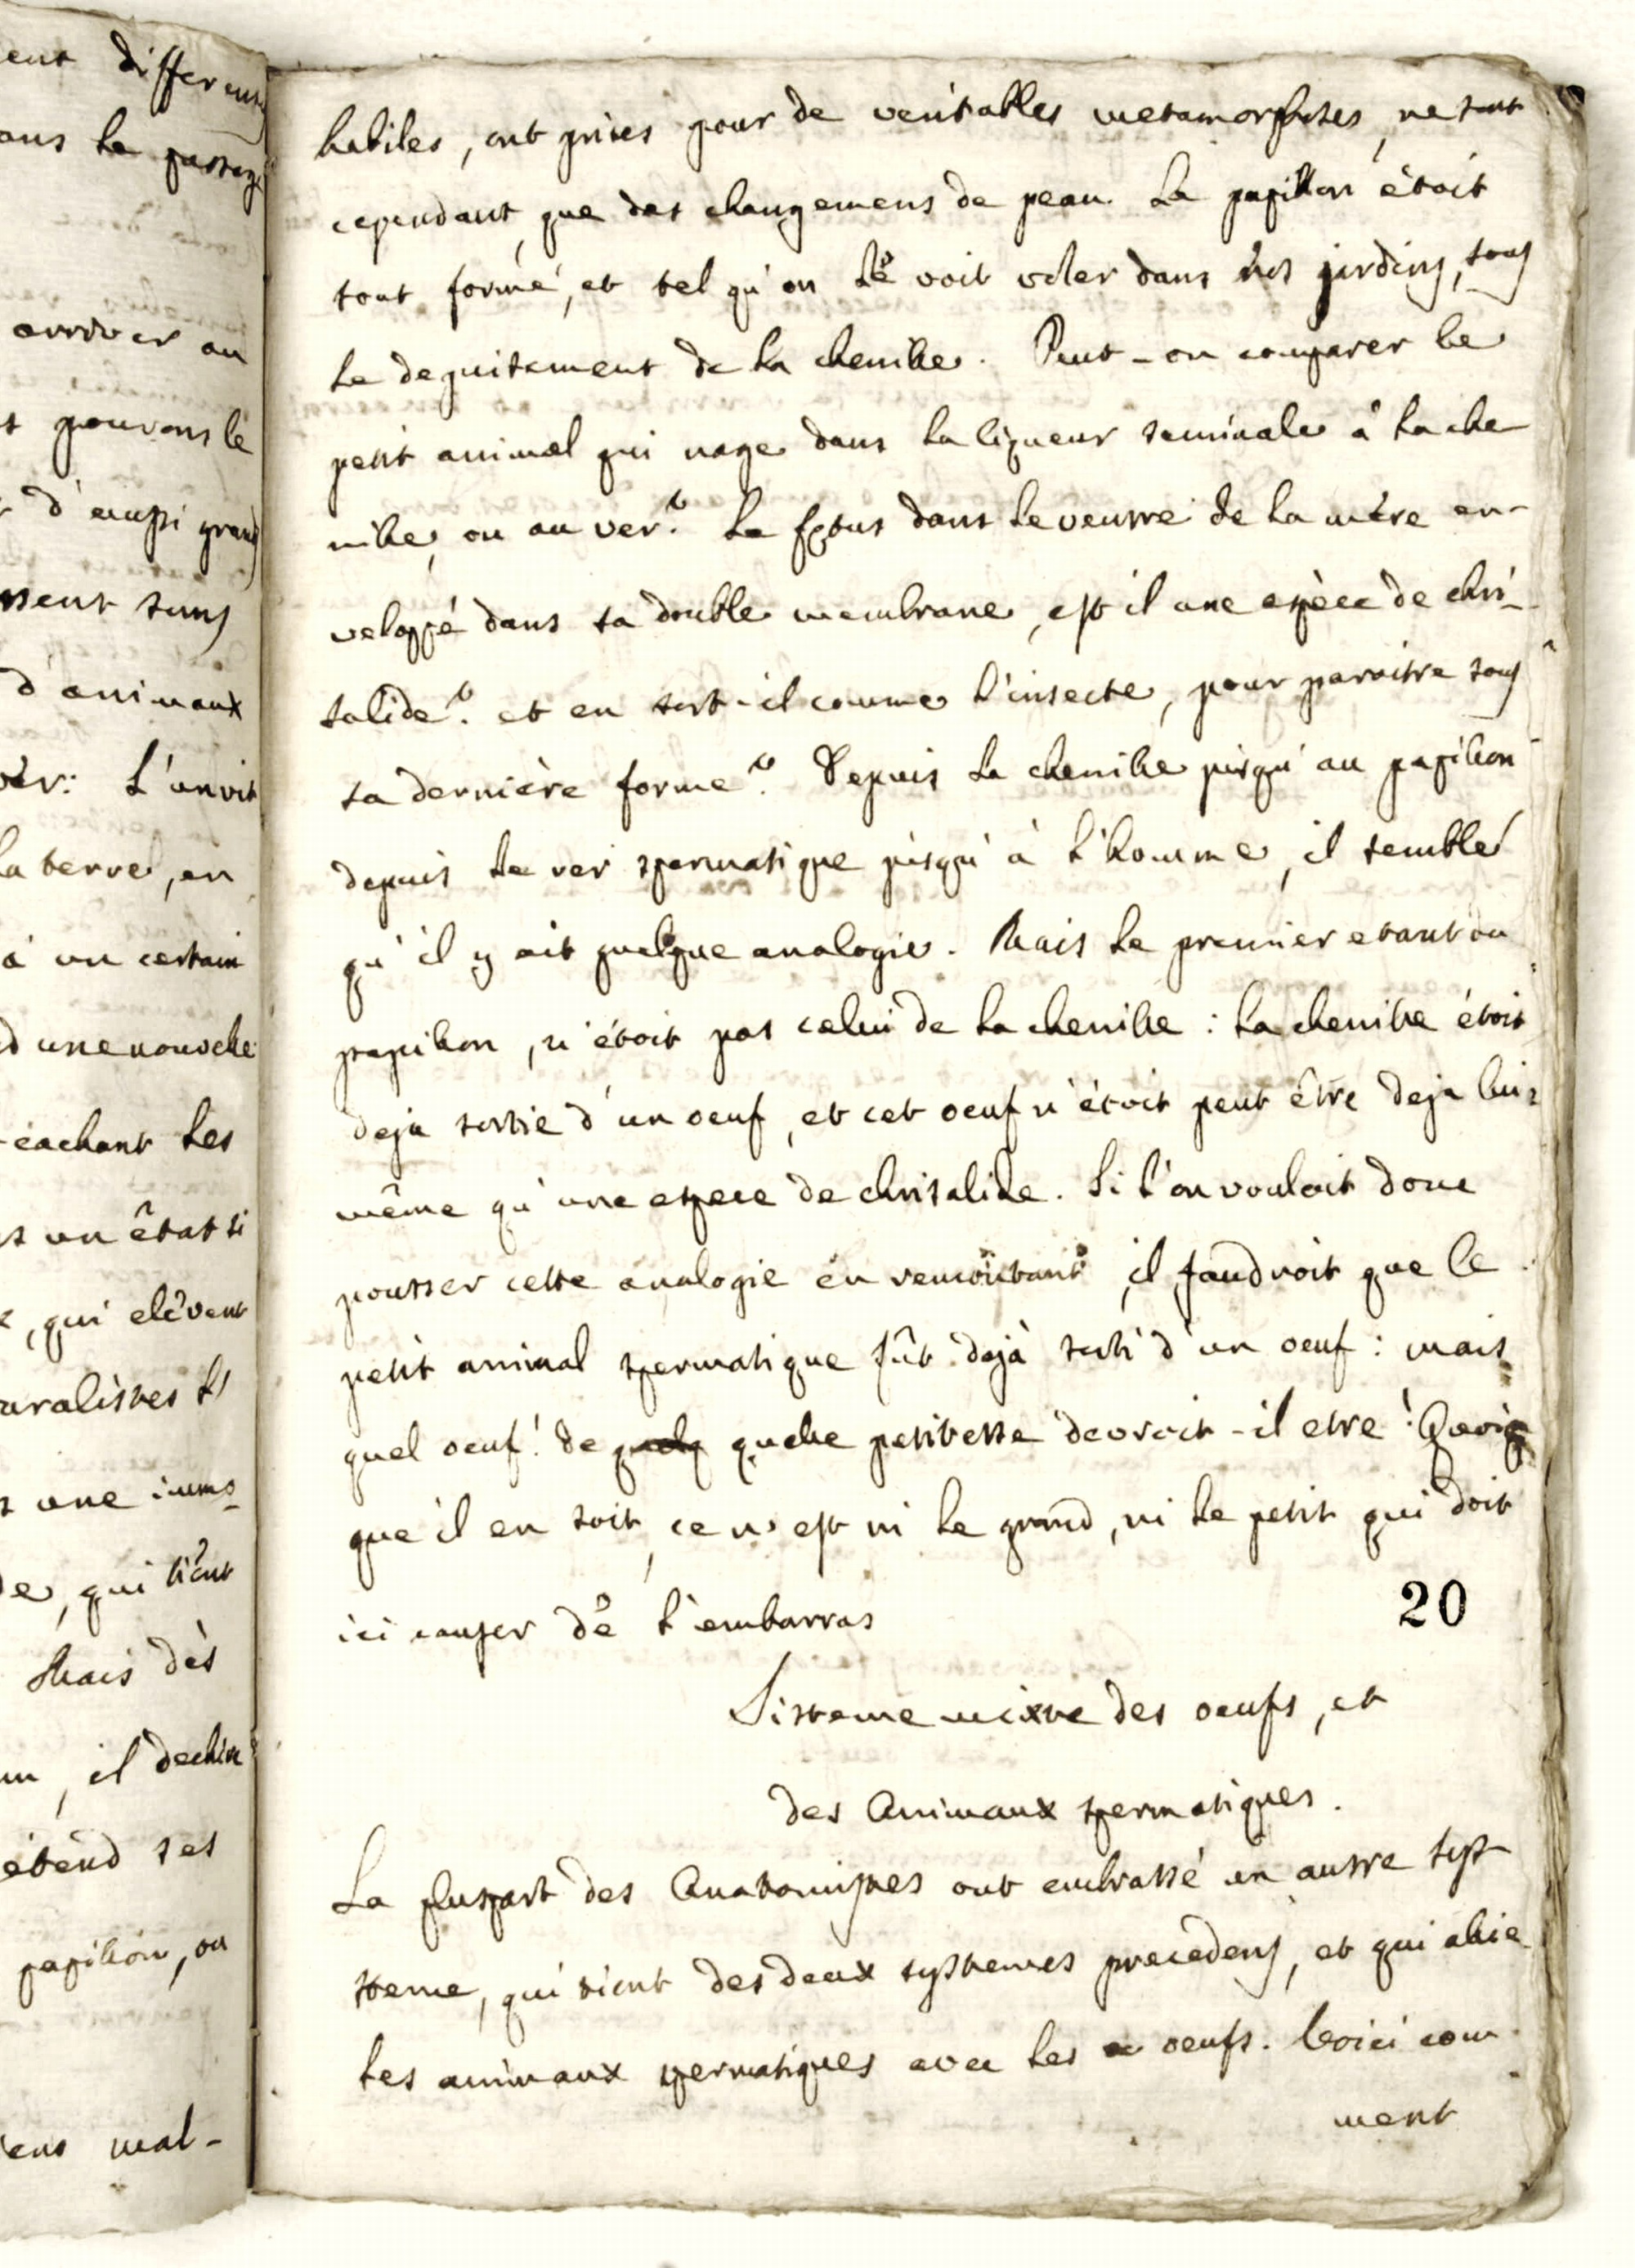 ent differents
ans le passage
arriver au
t pouvons le
d'aussi grand
ssent sans
d'animaux
ver: l'on vit
la terre, en
à un certain
d une nouvelle
cachant les
s un état si
, qui elévent
uralistes l
t une immo-
de, qui tient
Mais dès
il dechir
étend ses
papillon, ou
iens mal-
habiles, ont prises pour de veritables metamorphoses, ne sont
cependant, que des changemens de peau. Le papillon étoit
tout formé, et tel qu'on le voit voler dans nos jardins, sous
le deguisement de la chenille. Peut-on comparer le
petit animal qui nage dans la liqueur seminale à la che-
nille, ou au ver? Le fœtus dans le ventre de la mére en-
veloppé dans sa double membrane, est il une espèce de chri-
salide? et en sort-il comme l'insecte, pour paroitre sous
sa dernière forme? Depuis la chenille jusqu'au papillon
depuis le ver spermatique jusqu'à l'homme, il semble
qu'il y ait quelque analogie. Mais le premier etant du
papillon, n'étoit pas celui de la chenille: la chenille étoit
deja sortie d'un oeuf, et cet oeuf n'étoit peut être deja lui-
même qu'une espece de chrisalide. Si l'on vouloit donc
pousser cette analogie en remontant, il faudroit que le
petit animal spermatique fût dejà sorti d'un oeuf: mais
quel oeuf! de quelle petitesse devroit-il etre! Quoiq
que il en soit, ce n'est ni le grand, ni le petit qui doit
ici causer de l'embarras
20
Sisteme mixte des oeufs, et
des Animaux spermatiques.
La pluspart des Anatomistes ont embrassé un autre sys-
steme, qui tient des deux systemes precedens, et qui allie
les animaux spermatiques avec les oeufs. Voici com-
ment